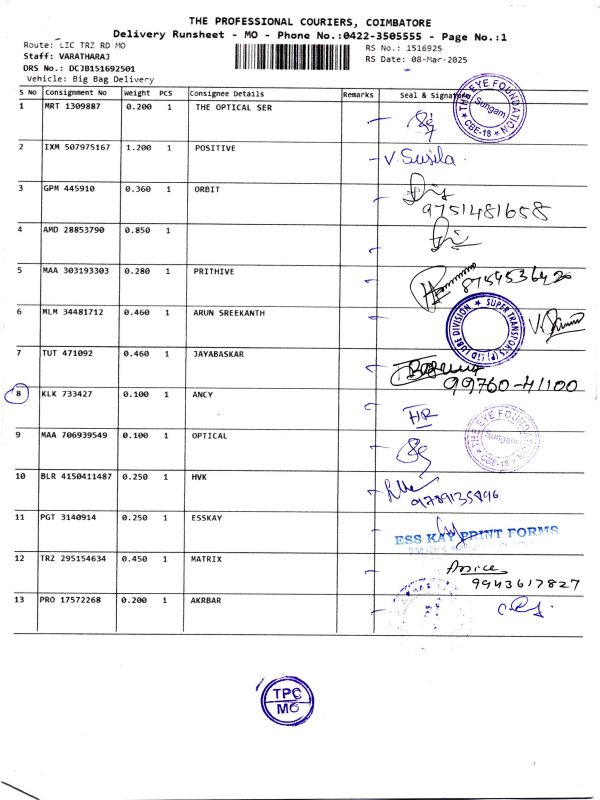 THE PROFESSIONAL COURIERS, COIMBATORE
Delivery Runsheet - MO - Phone No.:0422-3505555 - Page No.:1
Route: LIC TRZ RD MO
RS No.: 1516925
Staff: VARATHARAJ
RS Date: 08-Mar-2025
DRS No.: DCJB151692501
Vehicle: Big Bag Delivery
S No Consignment No Weight PCS Consignee Details Remarks Seal & Signature
1 MRT 1309887 0.200 1 THE OPTICAL SER
THE EYE FOUNDATION Sungam CBE-18
2 IXM 507975167 1.200 1 POSITIVE V. Susila
3 GPM 445910 0.360 1 ORBIT
9751481658
4 AMD 28853790 0.850 1
5 MAA 303193303 0.280 1 PRITHIVE 8754536420
6 MLM 34481712 0.460 1 ARUN SREEKANTH
SUPER TRANSPORTS (P) LTD LUBE DIVISION
7 TUT 471092 0.460 1 JAYABASKAR
99760-41100
8 KLK 733427 0.100 1 ANCY
HR
9 MAA 706939549 0.100 1 OPTICAL
THE EYE FOUNDATION Sungam CBE-18
10 BLR 4150411487 0.250 1 HVK
9789135896
11 PGT 3140914 0.250 1 ESSKAY
ESS KAY PRINT FORMS
12 TRZ 295154634 0.450 1 MATRIX
9943617827
13 PRO 17572268 0.200 1 AKRBAR
TPC
MO